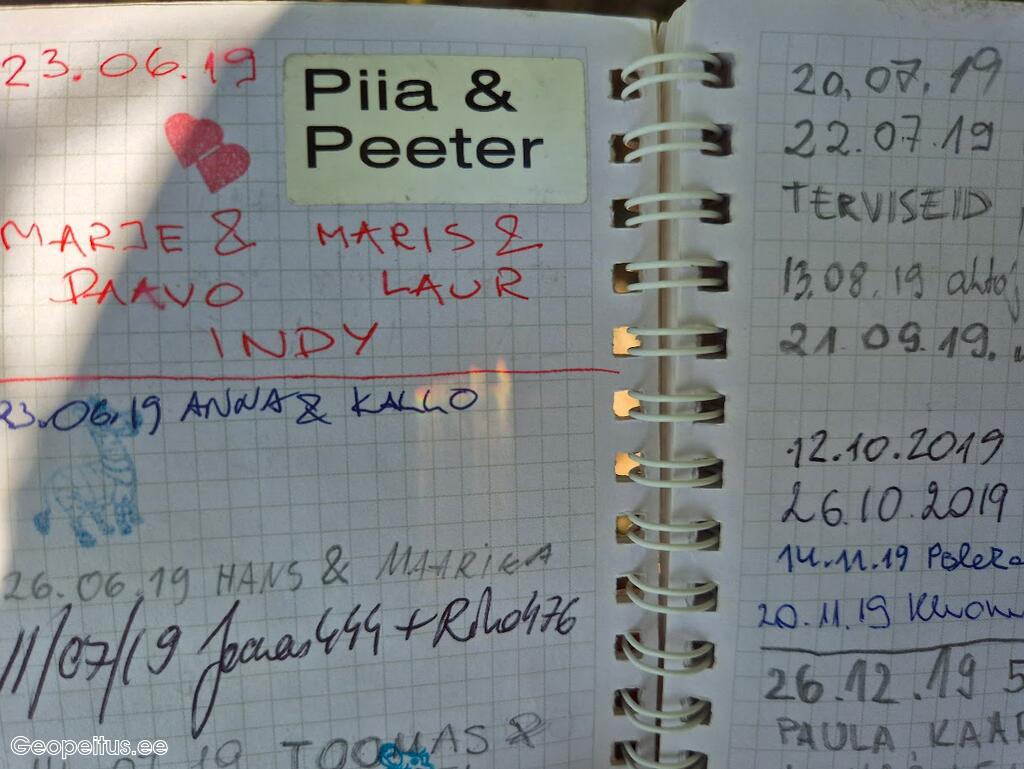 23.06.19
Piia &
Peeter
MARJE & MARIS &
PAAVO LAUR
INDY
23.06.19 ANNA & KALLO
26.06.19 HANS & MAARIKA
11/07/19 Joonas444 + Riho476
19 TOOMAS &
20.07.19
22.07.19
TERVISEID
13.08.19 ahtoj
21.09.19.
12.10.2019
26.10.2019
14.11.19
20.11.19
26.12.19 5
PAULA, KAAR
Geopeitus.ee